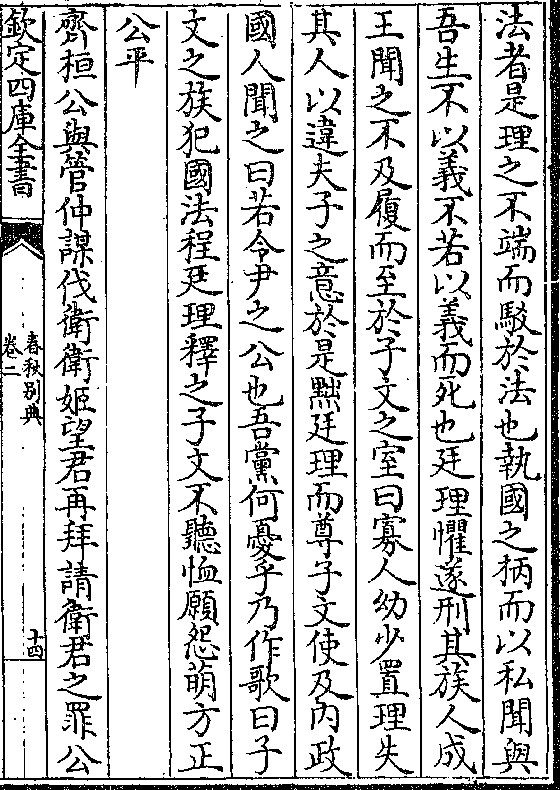 法者是理之不端而駁於法也執國之柄而以私聞與
吾生不以義不若以義而死也廷理懼遂刑其族人成
王聞之不及履而至於子文之室曰寡人幼少置理失
其人以違夫子之意於是黜廷理而尊子文使及内政
國人聞之曰若令尹之公也吾黨何憂乎乃作歌曰子
文之族犯國法程廷理釋之子文不聽恤願怨萌方正
公平
齊桓公與管仲謀伐衛衛姬望君再拜請衛君之罪公
欽定四庫全書
春秋别典
卷二
十四